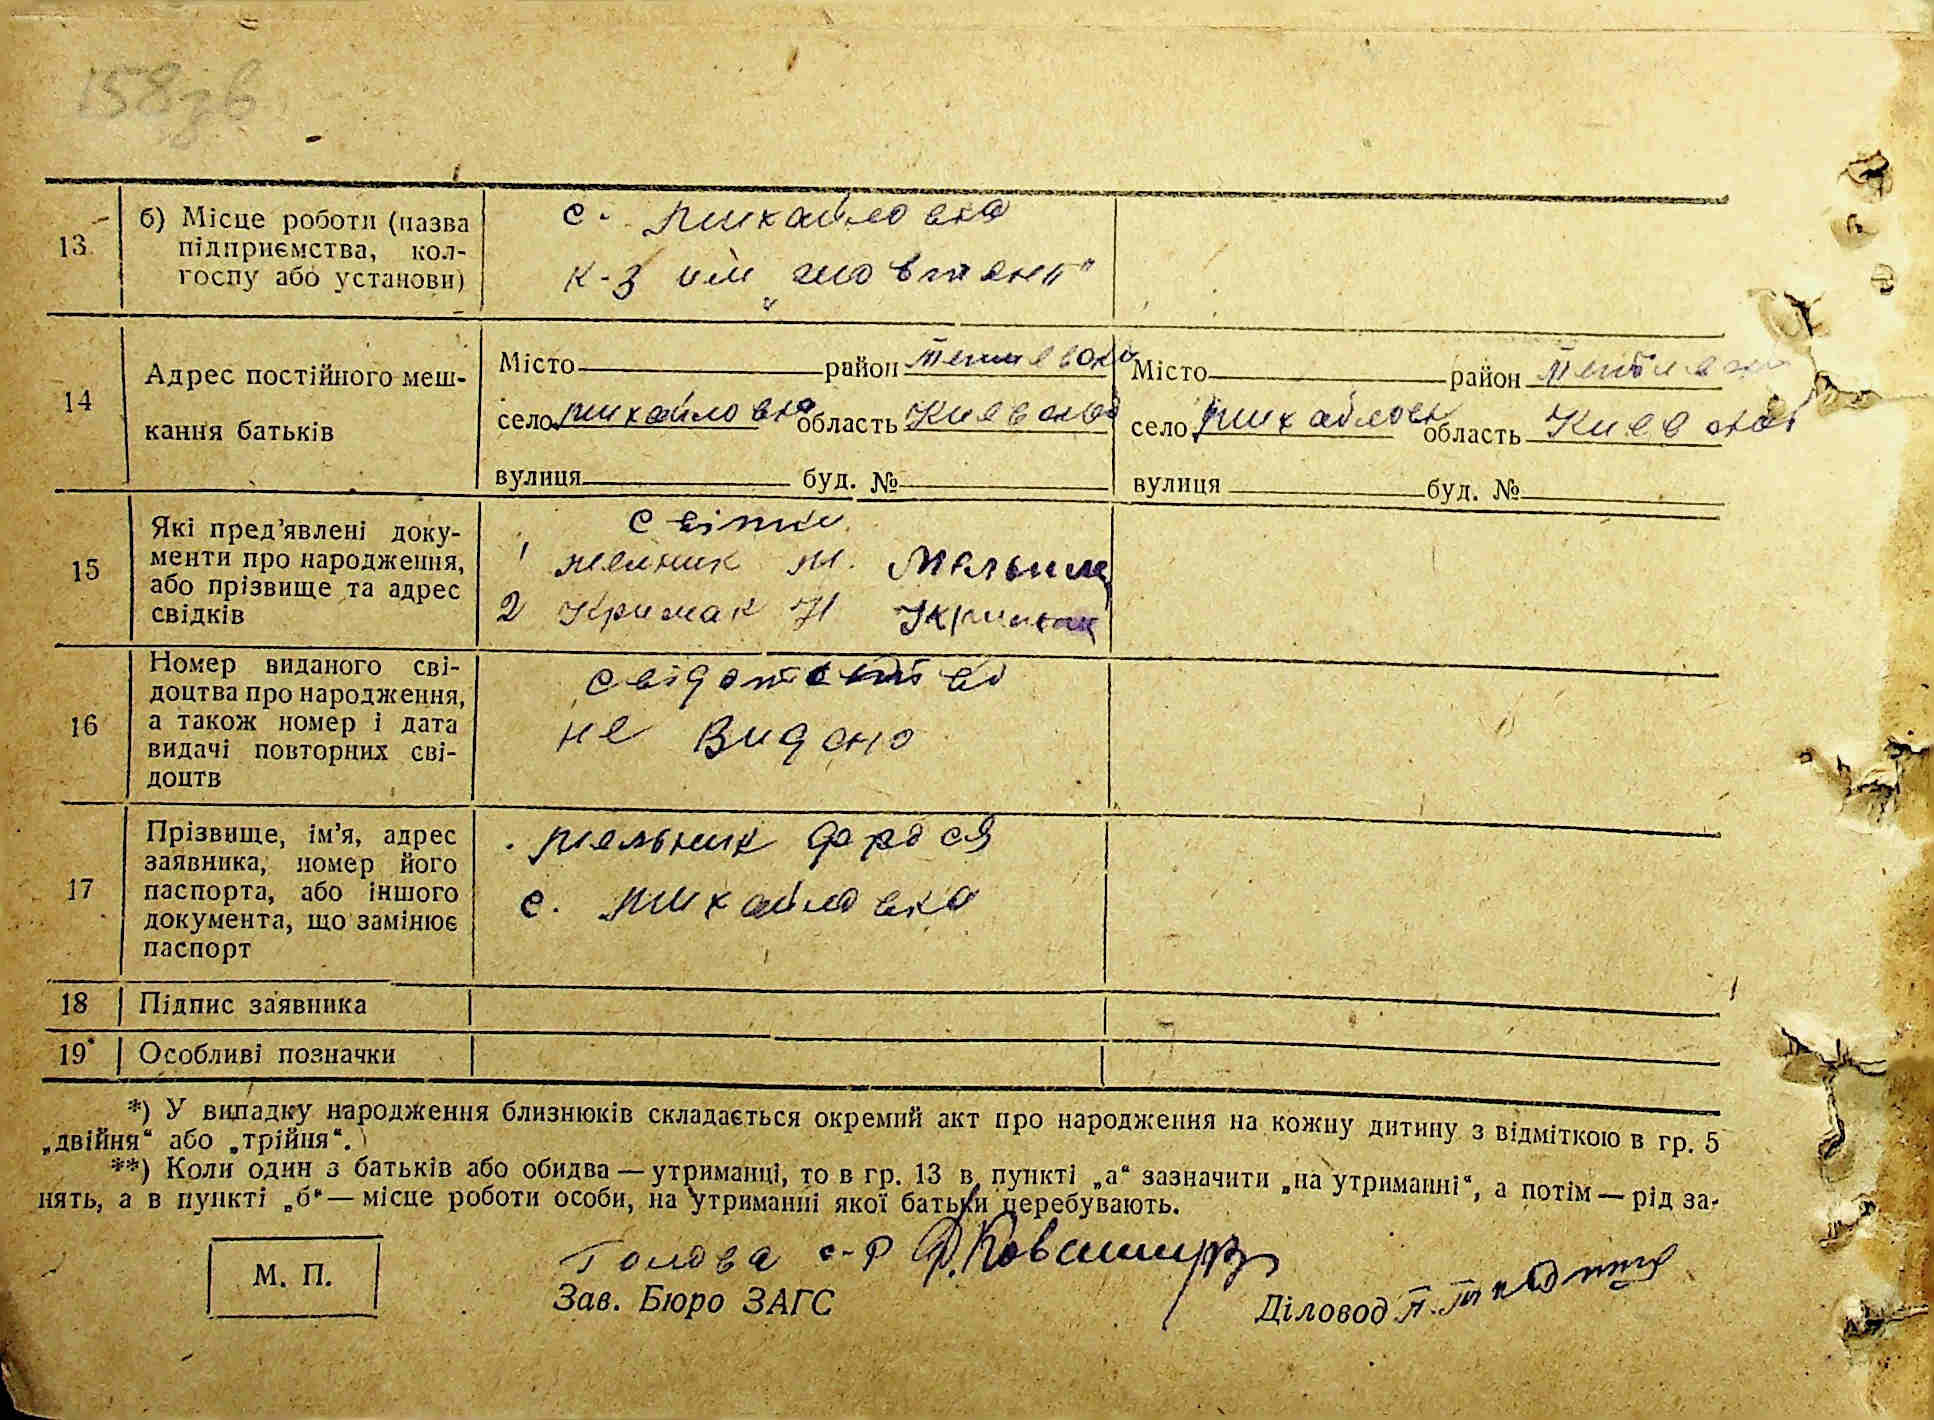 158зв
13
б) Місце роботи (назва
підприємства, кол-
госпу або установи)
с. Михайловка
к-з им „Жовтень"
14
Адрес постійного меш-
кання батьків
Місто район
село Михайловка область Киевська
вулиця буд. №
Місто район
село Михайловк область Киевска
вулиця буд. №
15
Які пред'явлені доку-
менти про народження,
або прізвище та адрес
свідків
Свідки
1 Мелник М.
2 Кримак Н
16
Номер виданого сві-
доцтва про народження,
а також номер і дата
видачі повторних сві-
доцтв
не видано
17
Прізвище, ім'я, адрес
заявника, номер його
паспорта, або іншого
документа, що замінює
паспорт
Мельник Фрося
с. Михайловка
18 Підпис заявника
19* Особливі позначки
*) У випадку народження близнюків складається окремий акт про народження на кожну дитину з відміткою в гр. 5
„двійня“ або „трійня“.
**) Коли один з батьків або обидва — утриманці, то в гр. 13 в пункті „а“ зазначити „на утриманні“, а потім — рід за-
нять, а в пункті „б“ — місце роботи особи, на утриманні якої батьки перебувають.
М. П.
Голова с-р
Зав. Бюро ЗАГС
Діловод